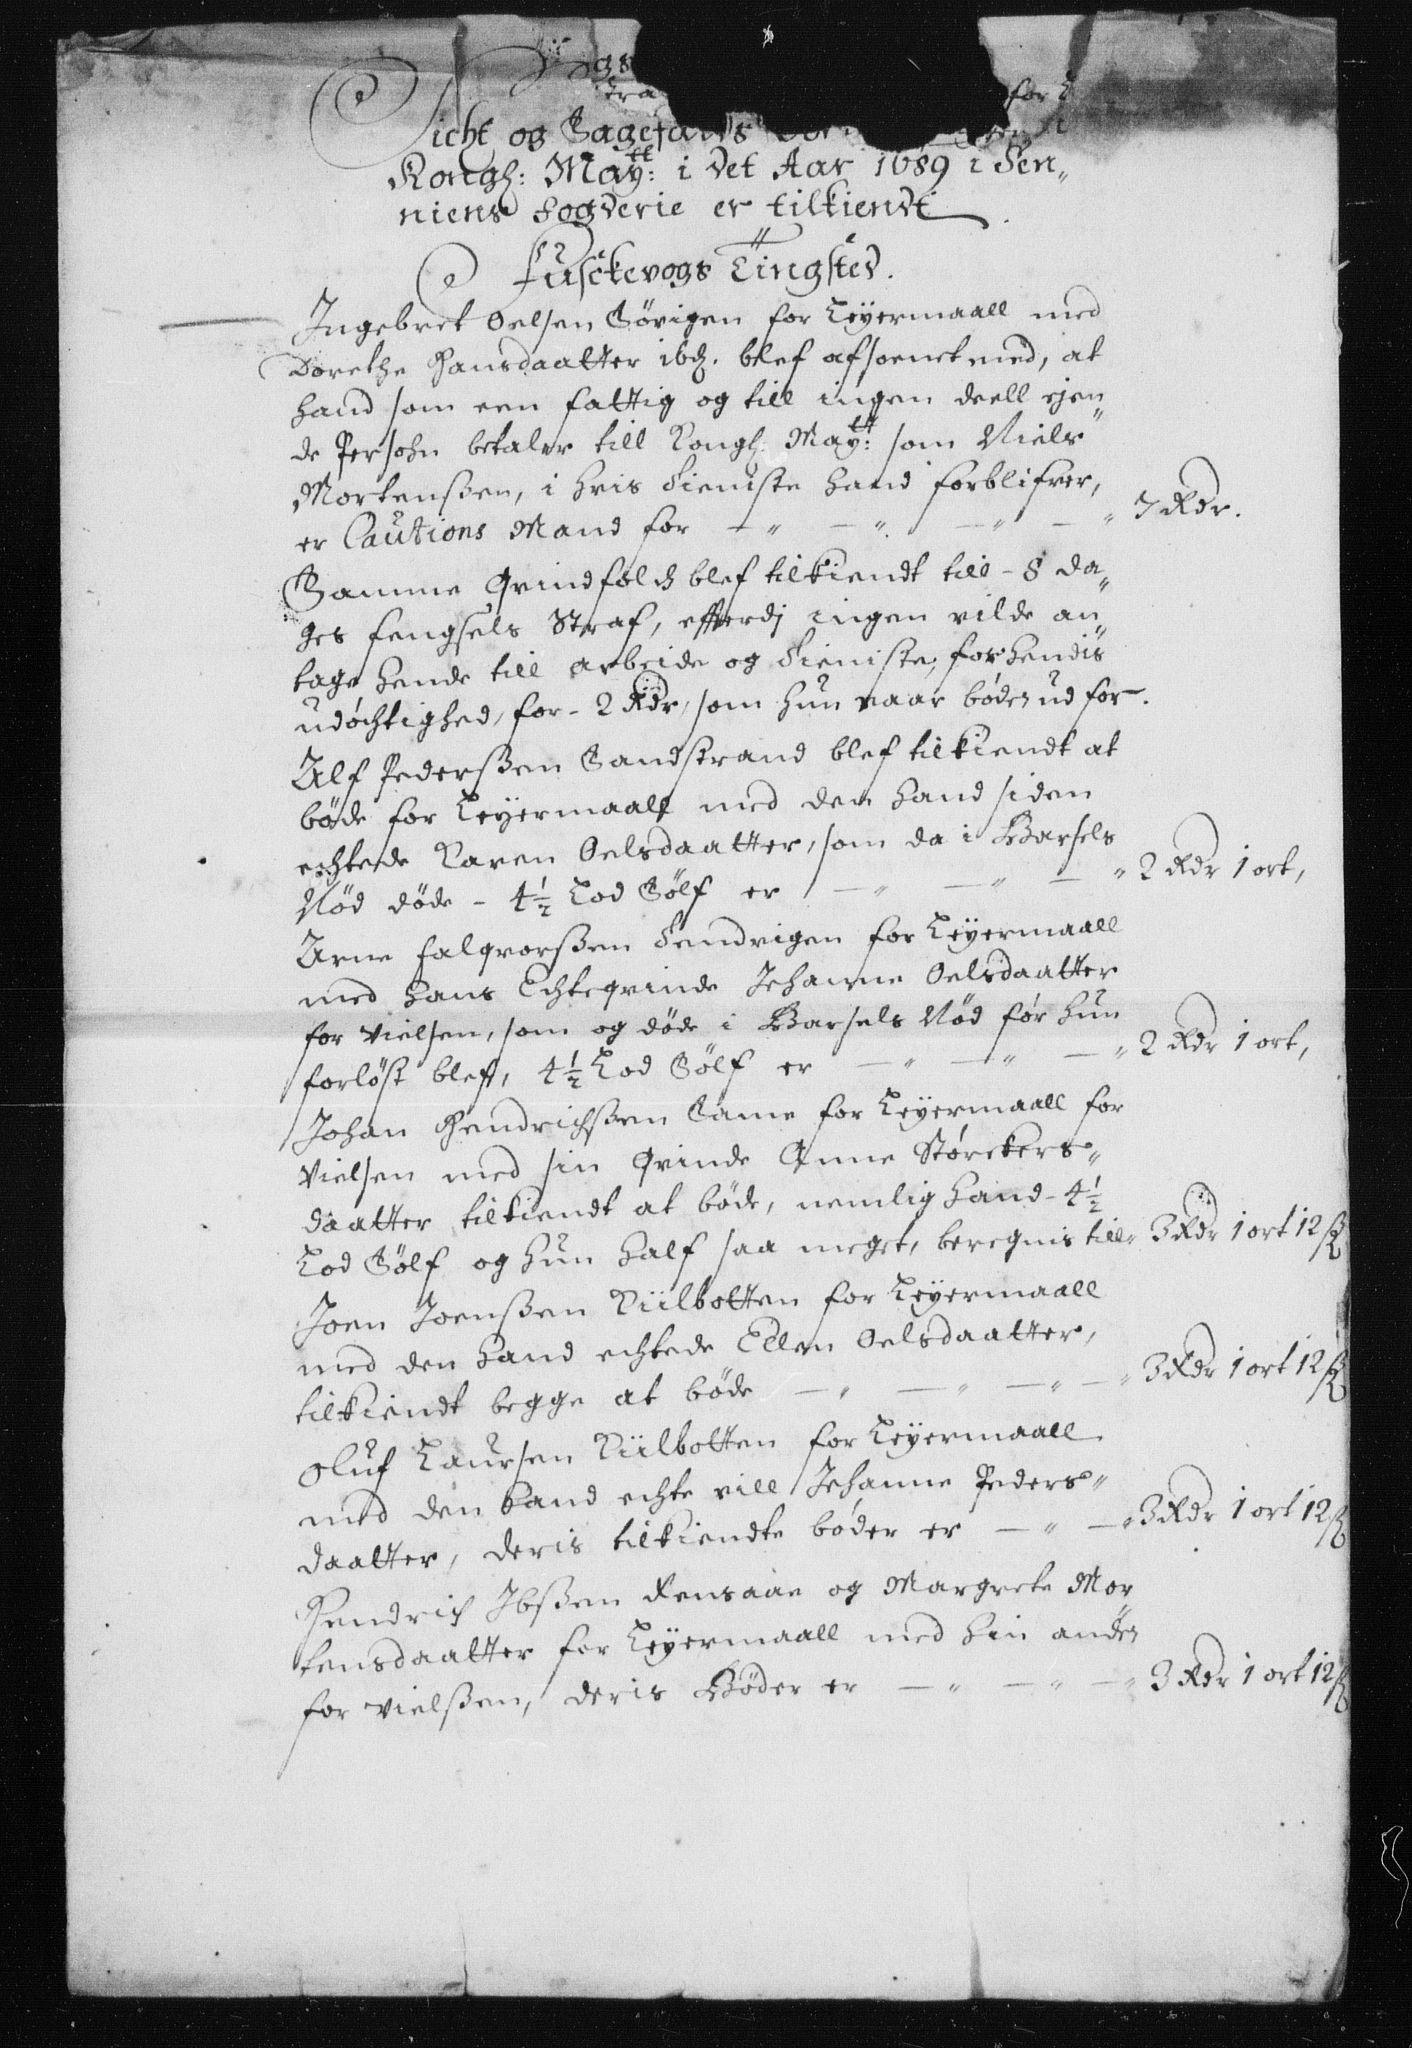 for
Sicht og Sagefalds
Kongl: Maytt: i det Aar 1689 i Sen„
niens Fogderie er tilkiendt
Fusckevogs Tingsted.
Ingebret Oelsen Søvigen for Leyermaall med
Dorethe Hansdaatter ibd. blef afsoenet med, at
hand som een fattig og till ingen deell ejen„
de Persohn betaler till Kongl: Maytt: som Niels
Mortenssen, i hvis Tieniste hand forblifver,
er Cautions Mand for — „ — „ — „ — „ 7 Rdr.
Samme Qvindfolch blef tilkiendt till - 8 da„
ges fengsels Straf, efterdj ingen vilde an„
tage hende till arbeide og Tieniste, for hendis
udøchtighed, for - 2 Rdr, som hun vaar bøden ud for.
Alf Pederssen Sandstrand blef tilkiendt at
bøde for Leyermaall med den hand siden
echtede Karen Oelsdaatter, som da i Barsels
Nød døde - 4½ Lod Sølf er — „ — „ — „ 2 Rdr 1 ort,
Arne Falqvorssen Tendvigen for Leyermaall
med hans Echteqvinde Johanne Oelsdaatter
for Vielsen, som og døde i Barsels Nød før hun
forløst blef, 4½ Lod Sølf er — „ — „ — „ 2 Rdr 1 ort,
Johan Hendrichssen Same for Leyermaall for
Vielsen med sin Qvinde Anne Størckers„
daatter tilkiendt at bøde, nemlig hand - 4½
Lod Sølf og hun half saa meget, beregnis till „ 3 Rdr 1 ort 12 ß
Joen Joenssen Kiilbotten for Leyermaall
med den hand echtede Ellen Oelsdaatter,
tilkiendt begge at bøde — „ — „ — „ — „ 3 Rdr 1 ort 12 ß
Oluf Laursen Kiilbotten for Leyermaall
med den hand echte vill Johanne Peders„
daatter, deris tilkiendte bøder er — „ — „ 3 Rdr 1 ort 12 ß
Hendrich Ibssen Rensaae og Margrete Mor„
tensdaatter for Leyermaall med hin anden
for vielssen, deris Bøder er — „ — „ — „ 3 Rdr 1 ort 12 ß